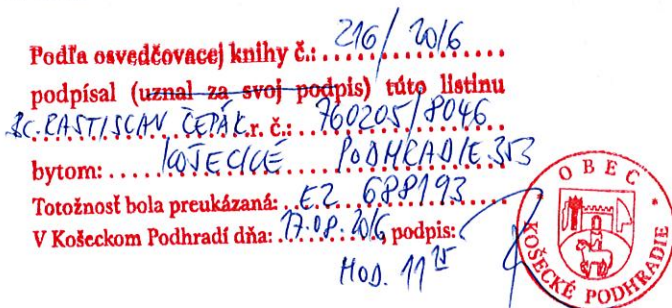 Podľa osvedčovacej knihy č.: 216/2016
podpísal (uznal za svoj podpis) túto listinu
Bc. RASTISLAV ČEPÁK r. č.: 760205/8046
bytom: KOŠECKÉ PODHRADIE 353
Totožnosť bola preukázaná: EZ 688193
V Košeckom Podhradí dňa: 17.08.2016, podpis:
HOD. 11 25
OBEC
KOŠECKÉ PODHRADIE